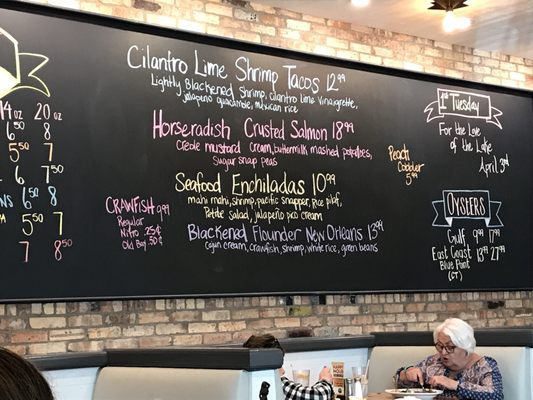 Cilantro Lime Shrimp Tacos 12.99
Lightly Blackened Shrimp, cilantro lime vinaigrette,
jalapeño guacamole, mexican rice
Horseradish Crusted Salmon 18.99
Creole mustard cream, buttermilk mashed potatoes,
sugar snap peas
Seafood Enchiladas 10.99
mahi mahi, shrimp, pacific snapper, Rice pilaf,
Potato Salad, jalapeño pico cream
Blackened Flounder New Orleans 13.99
Cajun cream, crawfish, shrimp, white rice, green beans
Peach
Cobbler
5.99
CRAWFISH 9.99
Regular
Nitro .25¢
Old Bay .50¢
14oz 20oz
6.50 8
5.50 7
6 7.50
6.50 8
5.50 7
7 8.50
1st Tuesday
For the Love
of the Lake
April 3rd
OYSTERS
Gulf 9.99 17.99
East Coast 13.99 27.99
Blue Point
(CT)